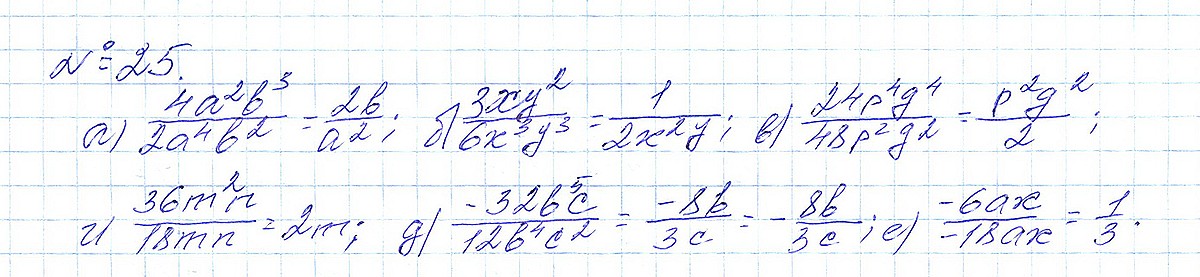 № 25.
а) 4a²b³/2a⁴b² = 2b/a²; б) 3xy²/6x³y³ = 1/2x²y; в) 24p⁴q⁴/48p²q² = p²q²/2;
г) 36m²n/18mn = 2m; д) -32b⁵c/12b⁴c² = -8b/3c = -8b/3c; е) -6ax/-18ax = 1/3.